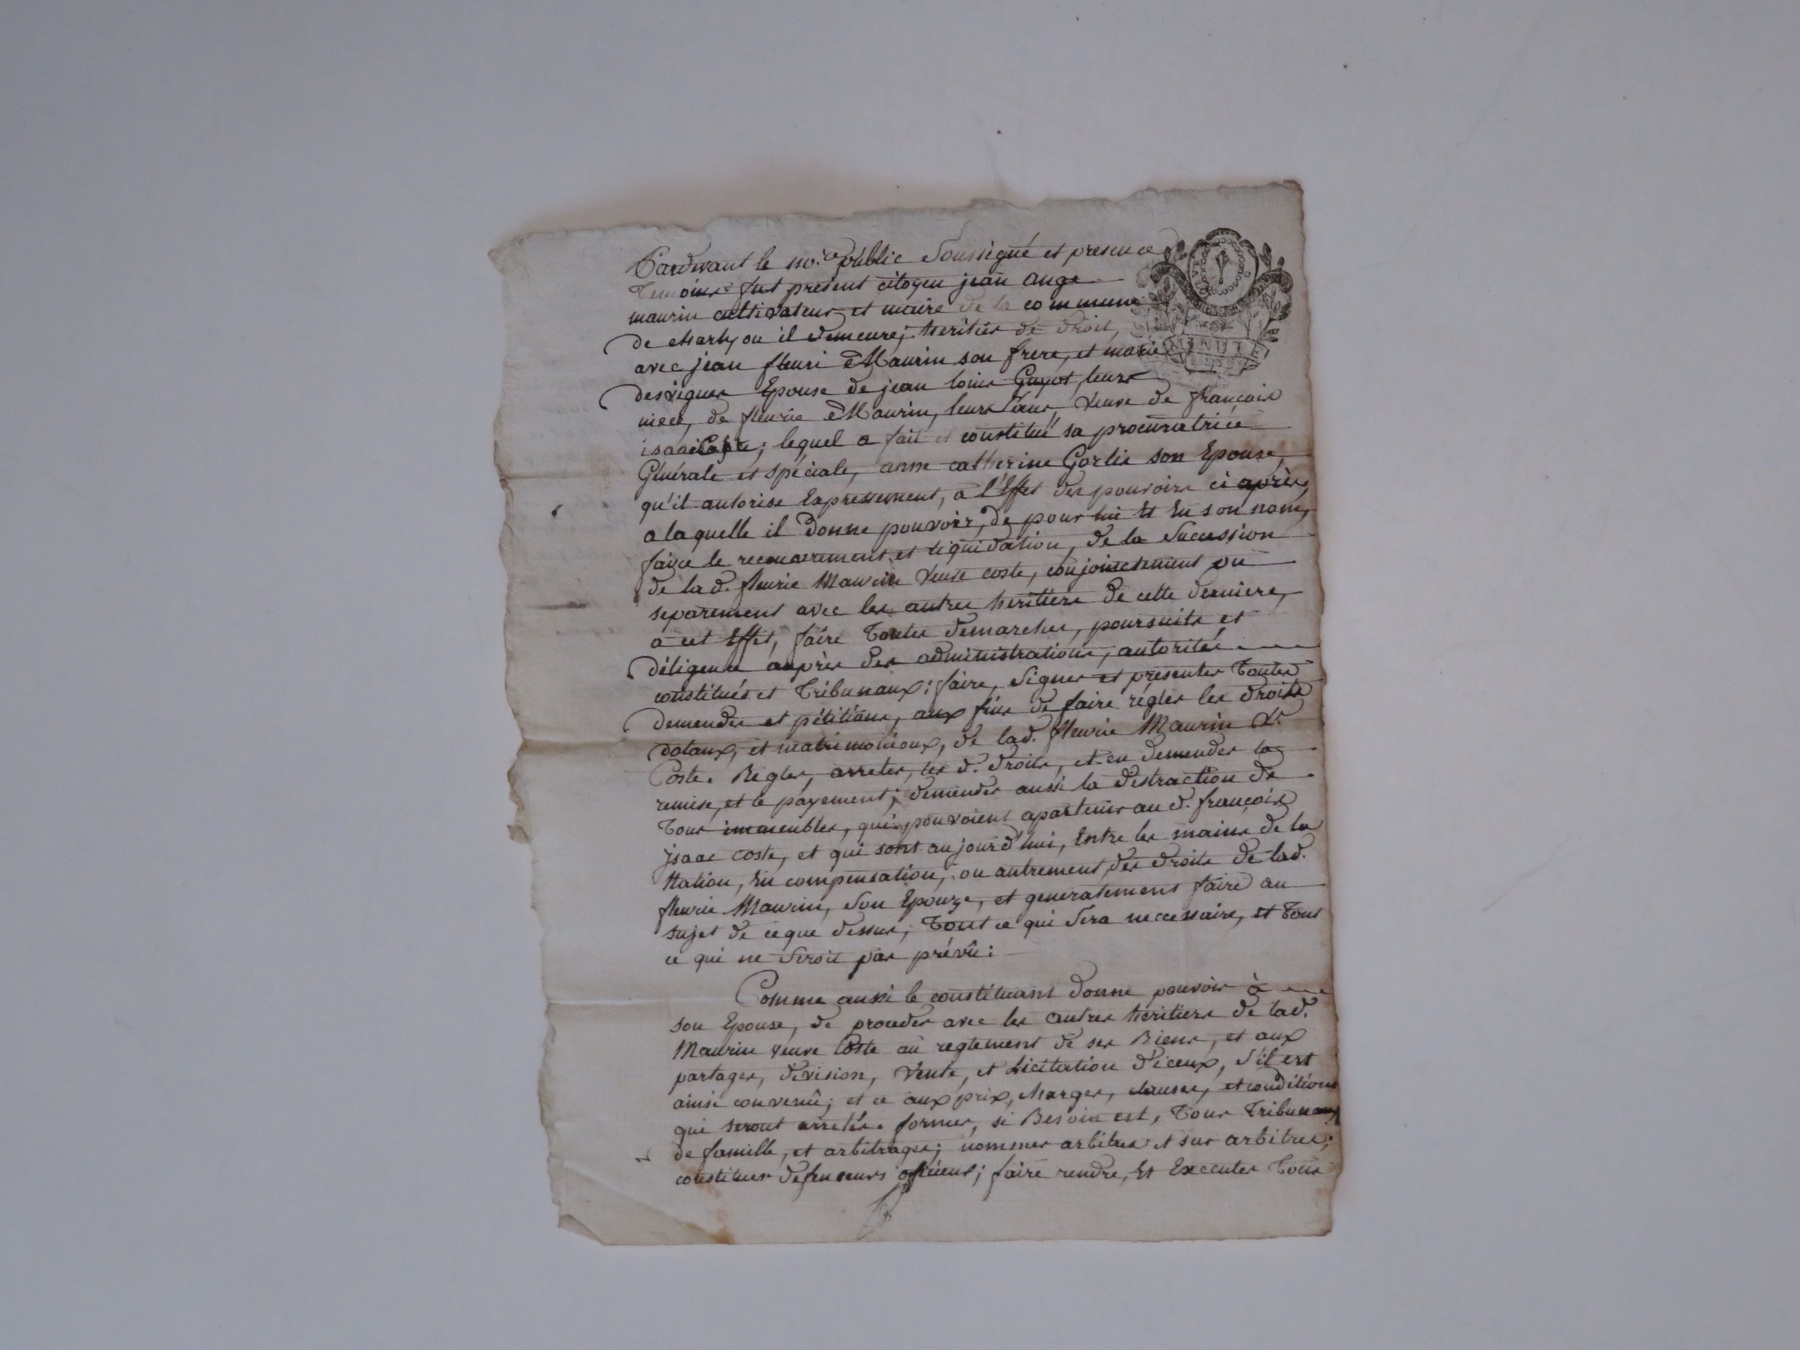 Pardevant le no.re public soussigné et presence
Temoins fut présent citoyen jean ange
maurin cultivateur et maire de la commune
de charly ou il demeure, heritier de droit,
avec jean fleuri Maurin son frere, et marie
desvignes Epouse de jean louis Guyot leurs
niece, de fleurie Maurin, leurs sœur, veuve de françois
isaac Coste; lequel a fait et constitué sa procuratrice
Générale et spéciale, anne catherine Gorlis son Epouse,
qu'il autorise Expressement, a l'Effet des pouvoirs ci après,
a laquelle il Donne pouvoir, de pour lui Et En son nom,
faire le recouvrement et liquidation, de la succession
de la d. fleurie Maurin veuve coste, conjointement ou
separement avec les autres heritiers de cette derniere,
a cet Effet, faire toutes demarches, poursuite et
déligence auprès des administrations, autorités
constitués et Tribunaux; faire, signer et présenter toutes
demendes et pétitions, aux fins de faire régler les droits
dotaux, et matrimoniaux, de lad. fleurie Maurin Ve.
Coste. Régler, arreter, les d. droits, et en demender la
remise, et le payement; demender aussi la distraction de
tous immeubles, qui pouvoient apartenir au d. françois
isaac coste, et qui sont aujourd'hui, Entre les mains de la
Nation, En compensation, ou autrement, des droits de lad.
fleurie Maurin, son Epouze, et generalement faire au
sujet de ce que dessus, tout ce qui sera neccessaire, et tout
ce qui ne seroit pas prévû:
Comme aussi le constituant donne pouvoir à
son Epouse, de proceder avec les autres heritiers de lad.
Maurin veuve Coste au reglement de ses Biens, et aux
partages, division, vente, et Licitation d'iceux, s'il est
ainsi convenû; et ce aux prix, charges, clauses, et conditions
qui seront arretés. former, si Besoin est, tous Tribunaux
de famille, et arbitrages; nommer arbitres et sur arbitres;
constituer defenseurs officieux; faire rendre, Et Executer tous
MINUTE